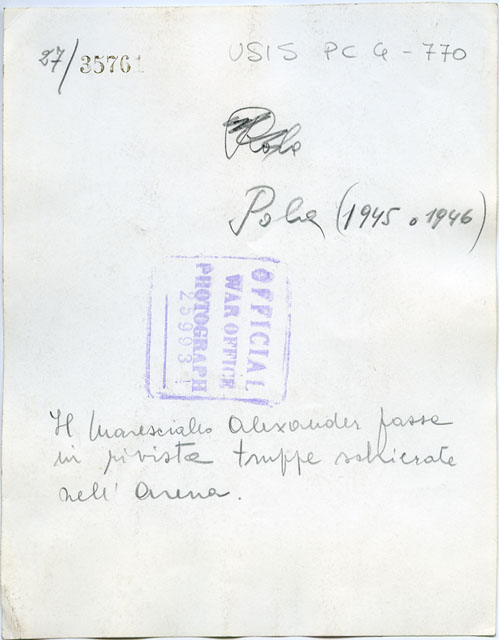 27/35761
USIS PC 4-770
Pola
Pola (1945 o 1946)
OFFICIAL
WAR OFFICE
PHOTOGRAPH
Il Maresciallo Alexander passa
in rivista truppe schierate
nell' Arena.